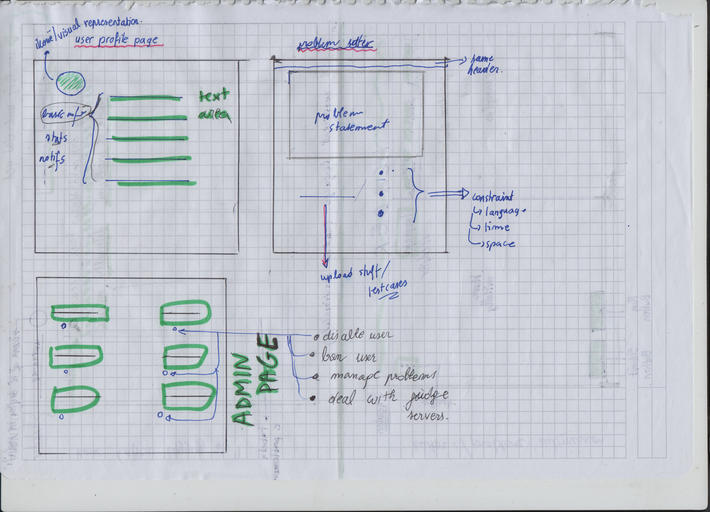 visual representation.
user profile page
text
area
basic info
stats
notifs
problem setter
same
header.
problem
statement
constraint
language
time
space
upload stuff/
testcases
ADMIN
PAGE
disable user
ban user
manage problems
deal with judge
servers.